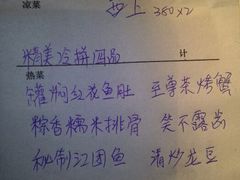 凉菜
西上 380×2
精美冷拼四品 计
热菜
罐焖红花鱼肚 至尊茶烤蟹
粽香糯米排骨 笑不露齿
秘制江团鱼 清炒龙豆